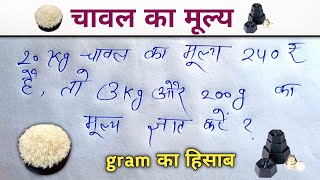 चावल का मूल्य
20 kg चावल का मूल्य 240 ₹
है, तो 3 kg और 200g का
मूल्य ज्ञात करें ?
gram का हिसाब